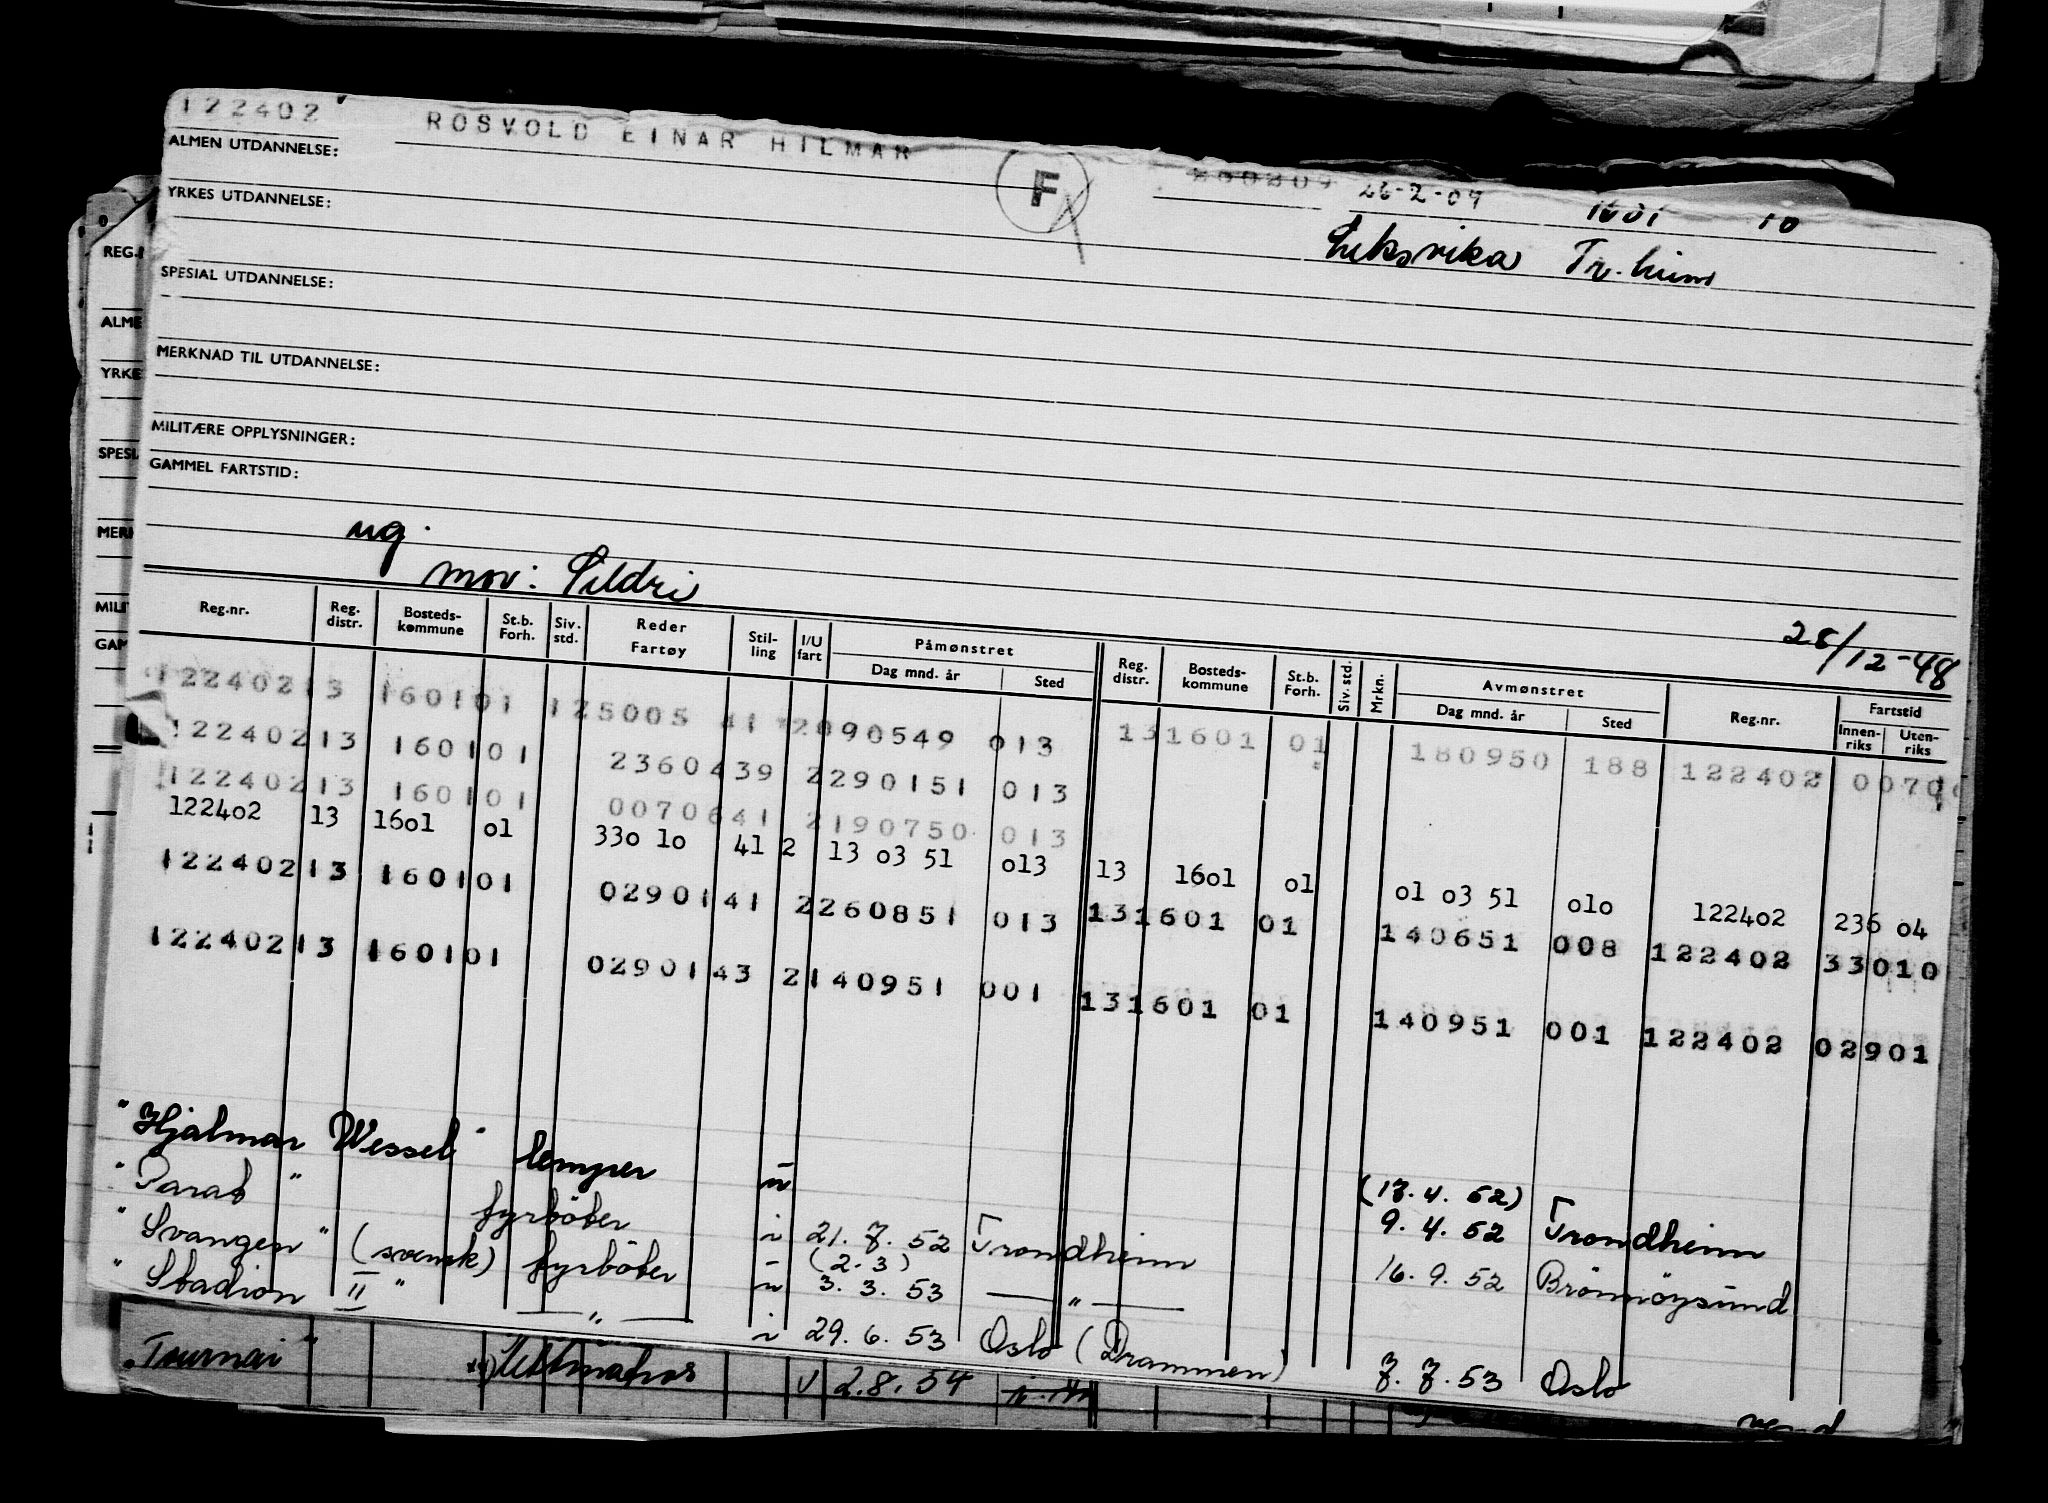 122402 ROSVOLD EINAR HILMAR
F 26-2-09 1601 10
ALMEN UTDANNELSE:
YRKES UTDANNELSE:
Leksvika Tr.heim
SPESIAL UTDANNELSE:
MERKNAD TIL UTDANNELSE:
MILITÆRE OPPLYSNINGER:
GAMMEL FARTSTID:
ug.
mor: Sildri
28/12-48
Reg.nr. Reg. distr. Bosteds-kommune St.b. Forh. Siv. std. Reder Fartøy Stil-ling I/U fart Påmønstret Dag mnd. år Sted Reg. distr. Bosteds-kommune St.b. Forh. Siv. std. Mrkn. Avmønstret Dag mnd. år Sted Reg.nr. Fartstid Innen-riks Uten-riks
122402 13 1601 01 125005 41 2 090549 013 13 1601 01 180950 188 122402 00706
122402 13 1601 01 23604 39 2 290151 013
122402 13 1601 01 00706 41 2 190750 013
122402 13 1601 01 330 10 41 2 13 03 51 013 13 1601 01 01 03 51 010 122402 236 04
122402 13 1601 01 02901 41 2 260851 013 13 1601 01 140651 008 122402 33010
122402 13 1601 01 02901 43 2 140951 001 13 1601 01 140951 001 122402 02901
"Hjalmar Wessel" lemper u (17.4.52)
fyrböter i 21.7.52 Trondheim 9.4.52 Trondheim
"Svangen" (svensk) fyrböter u (2.3) 3.3.53 — " — 16.9.52 Brönnöysund
"Stadion II" — " — i 29.6.53 Oslo (Drammen) 7.7.53 Oslo
"Tournai" Lettmatros 2.8.54
REG.
ALME
YRKE
SPESI
MERK
MILIT
GAM